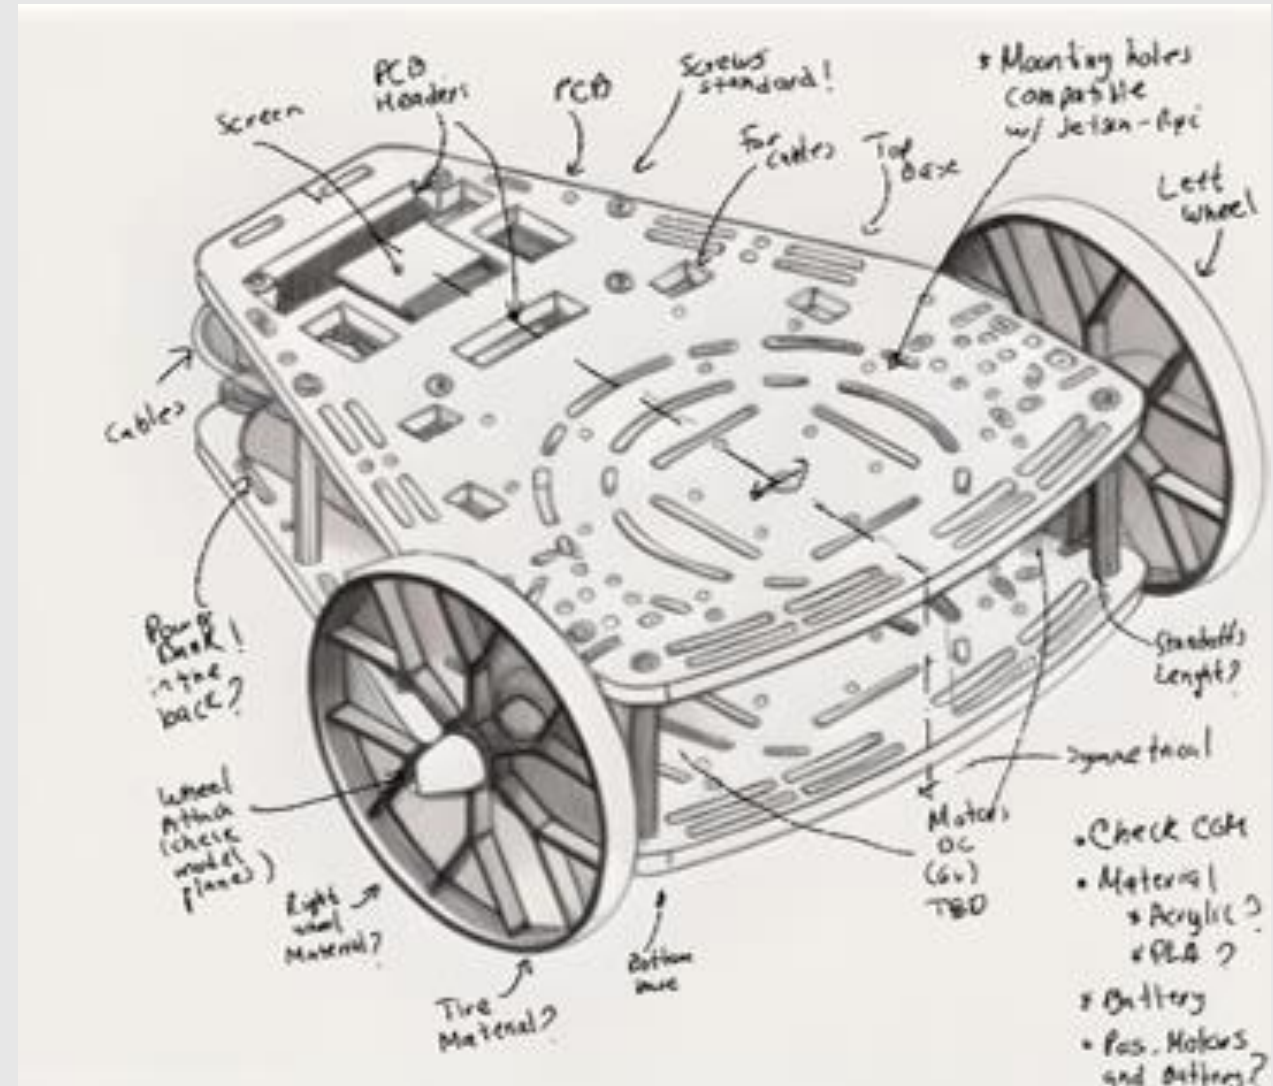 Screen
PCB
Headers
PCB
Screws
standard!
For
Cables
Top
Base
* Mounting holes
compatible
w/ Jetson-Rpi
Left
Wheel
Cables
Power
Bank!
in the
back?
Wheel
Attach
(check
model
planes)
Right
wheel
Material?
Tire
Material?
Bottom
Motors
DC
(6v)
TBD
Standoffs
Lenght?
Symmetrical
• Check CGM
• Material
* Acrylic?
* PLA?
* Battery
• Pos. Motors
and Bottom?